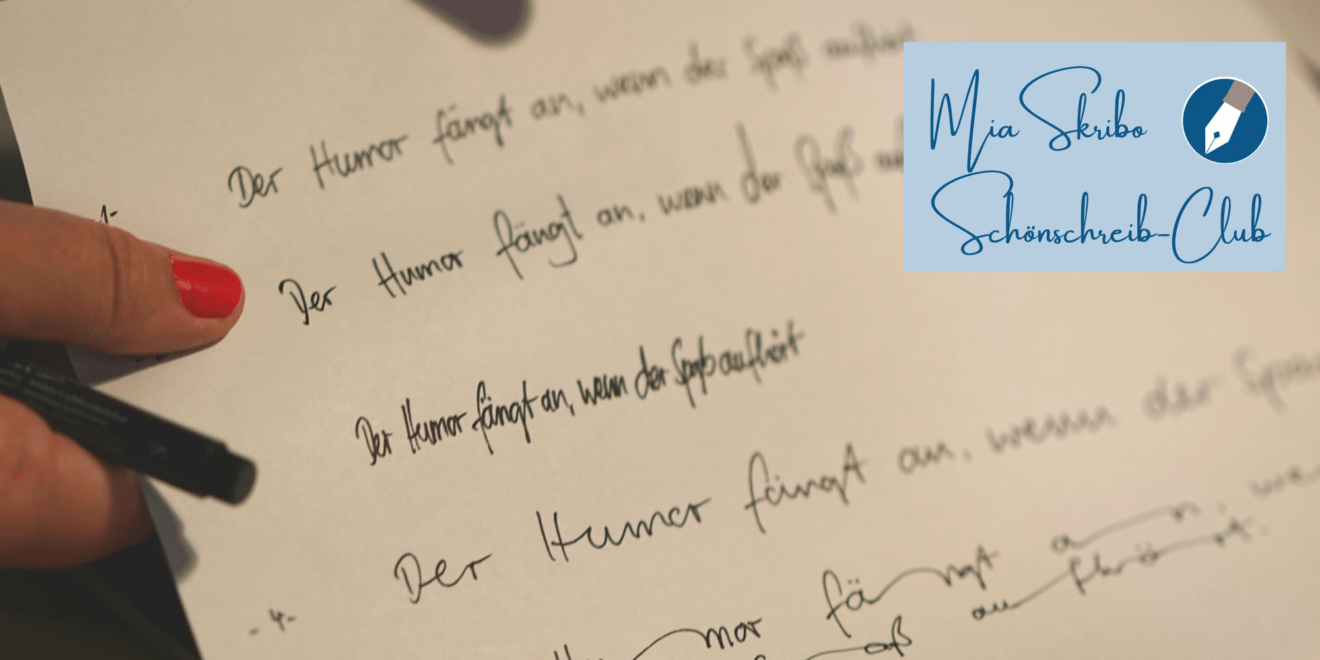 Der Humor fängt an, wenn der Spaß aufhört
Mia Skribo
Schönschreib-Club
-1-
Der Humor fängt an, wenn der Spaß
Der Humor fängt an, wenn der Spaß aufhört
Der Humor fängt an, wenn der
-4-
mor fängt an, we
aufhört.